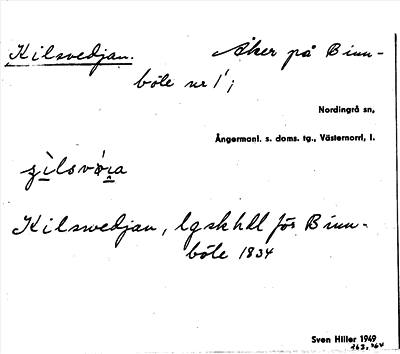 Kilsvedjan. Åker på Binn-
böle nr 1;
Nordingrå sn,
Ångermanl. s. doms. tg., Västernorrl, l.
Kilswedjan, lgskhdl för Binn-
böle 1834
Sven Hiller 1949